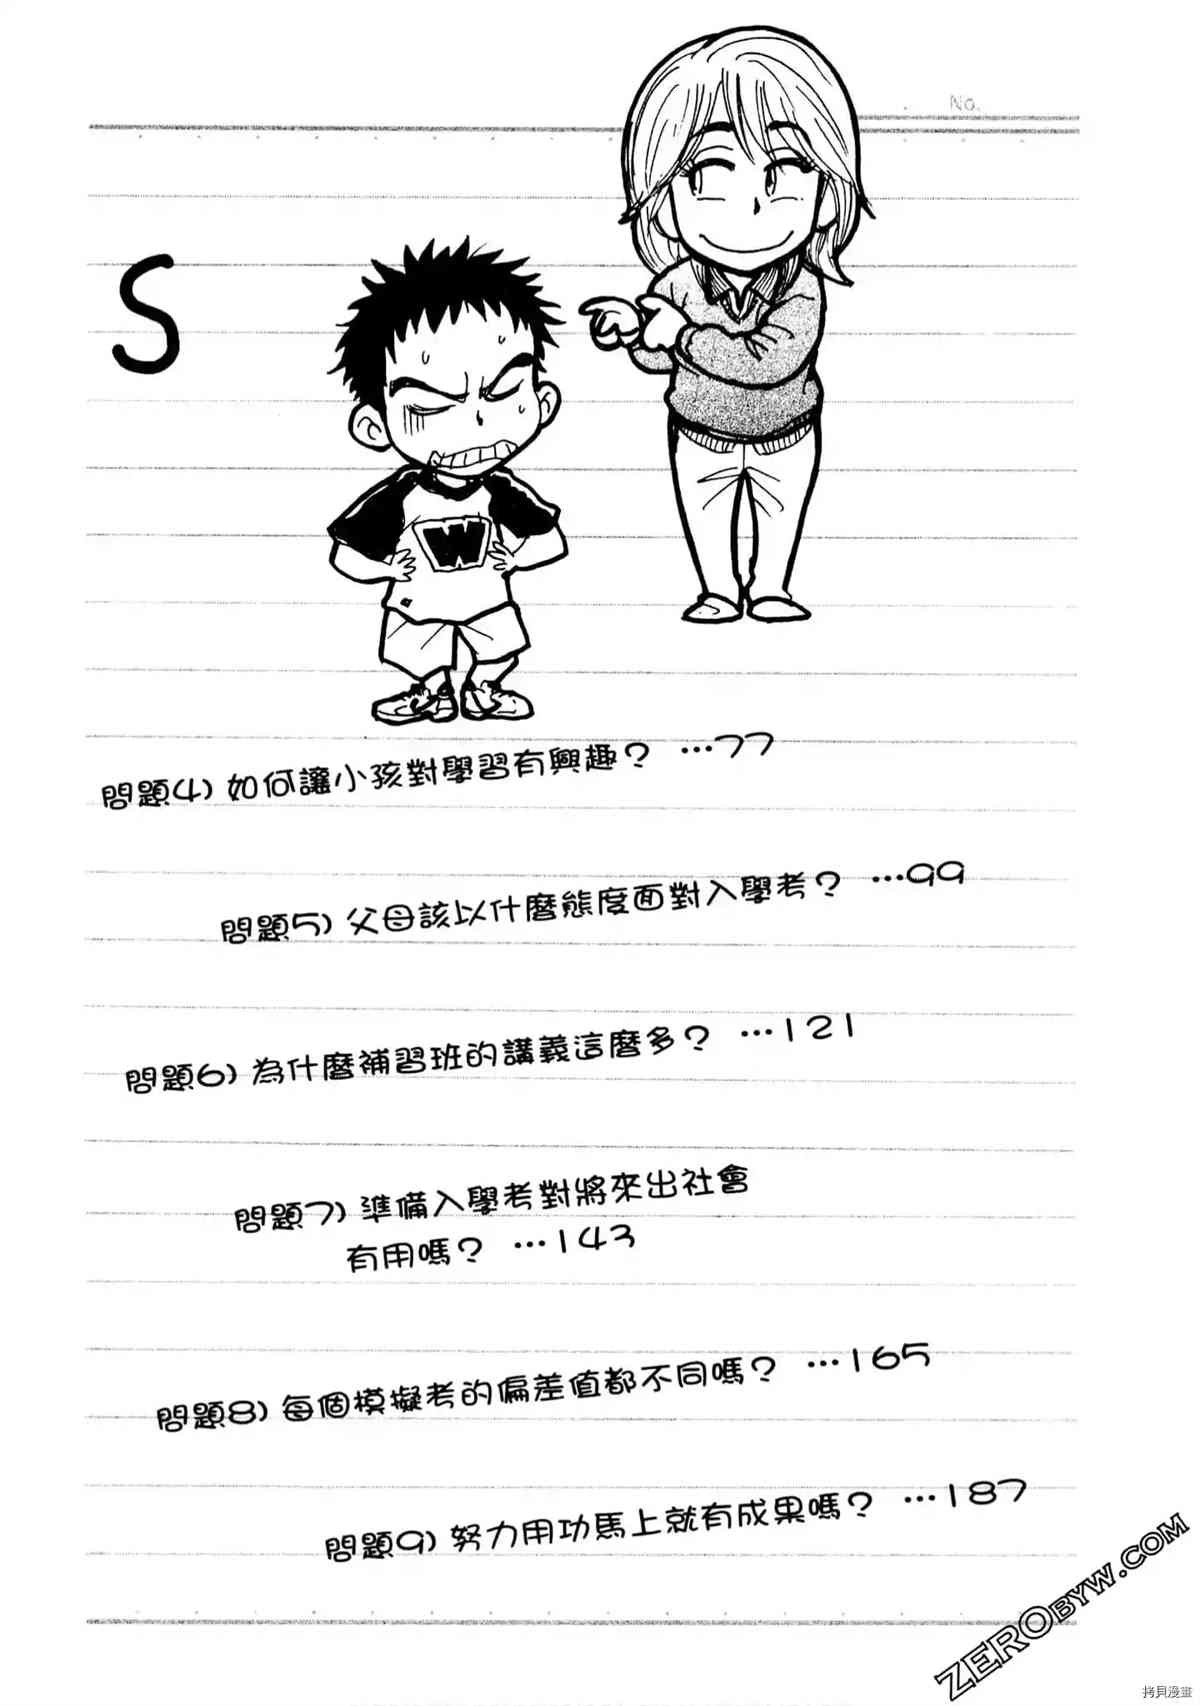 No.
S
W
問題4) 如何讓小孩對學習有興趣? …77
問題5) 父母該以什麼態度面對入學考? …99
問題6) 為什麼補習班的講義這麼多? …121
問題7) 準備入學考對將來出社會
有用嗎? …143
問題8) 每個模擬考的偏差值都不同嗎? …165
問題9) 努力用功馬上就有成果嗎? …187
ZEROBYW.COM
拷貝漫畫